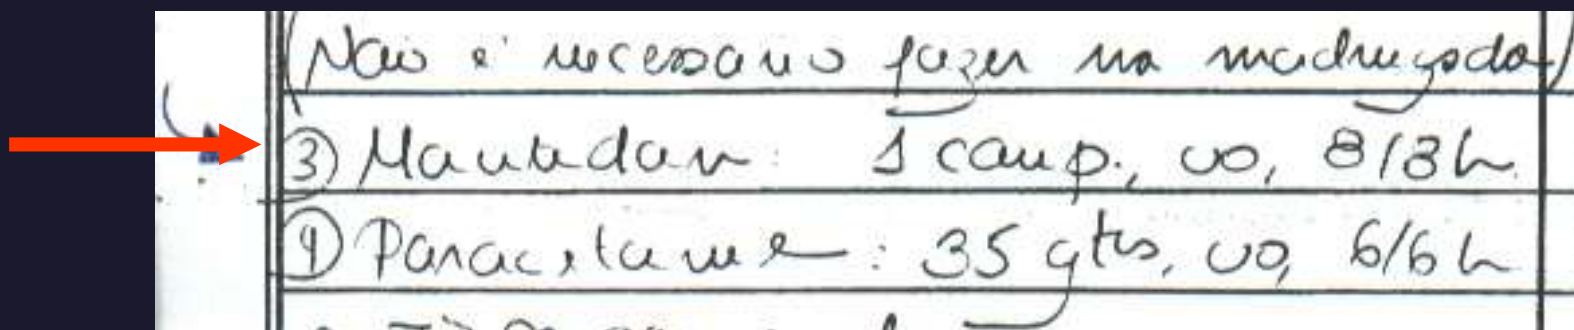 (Não é necessario fazer na madrugada)
③ Mantidan: 1 comp., vo, 8/8h
④ Paracetamol: 35 gts, vo, 6/6h